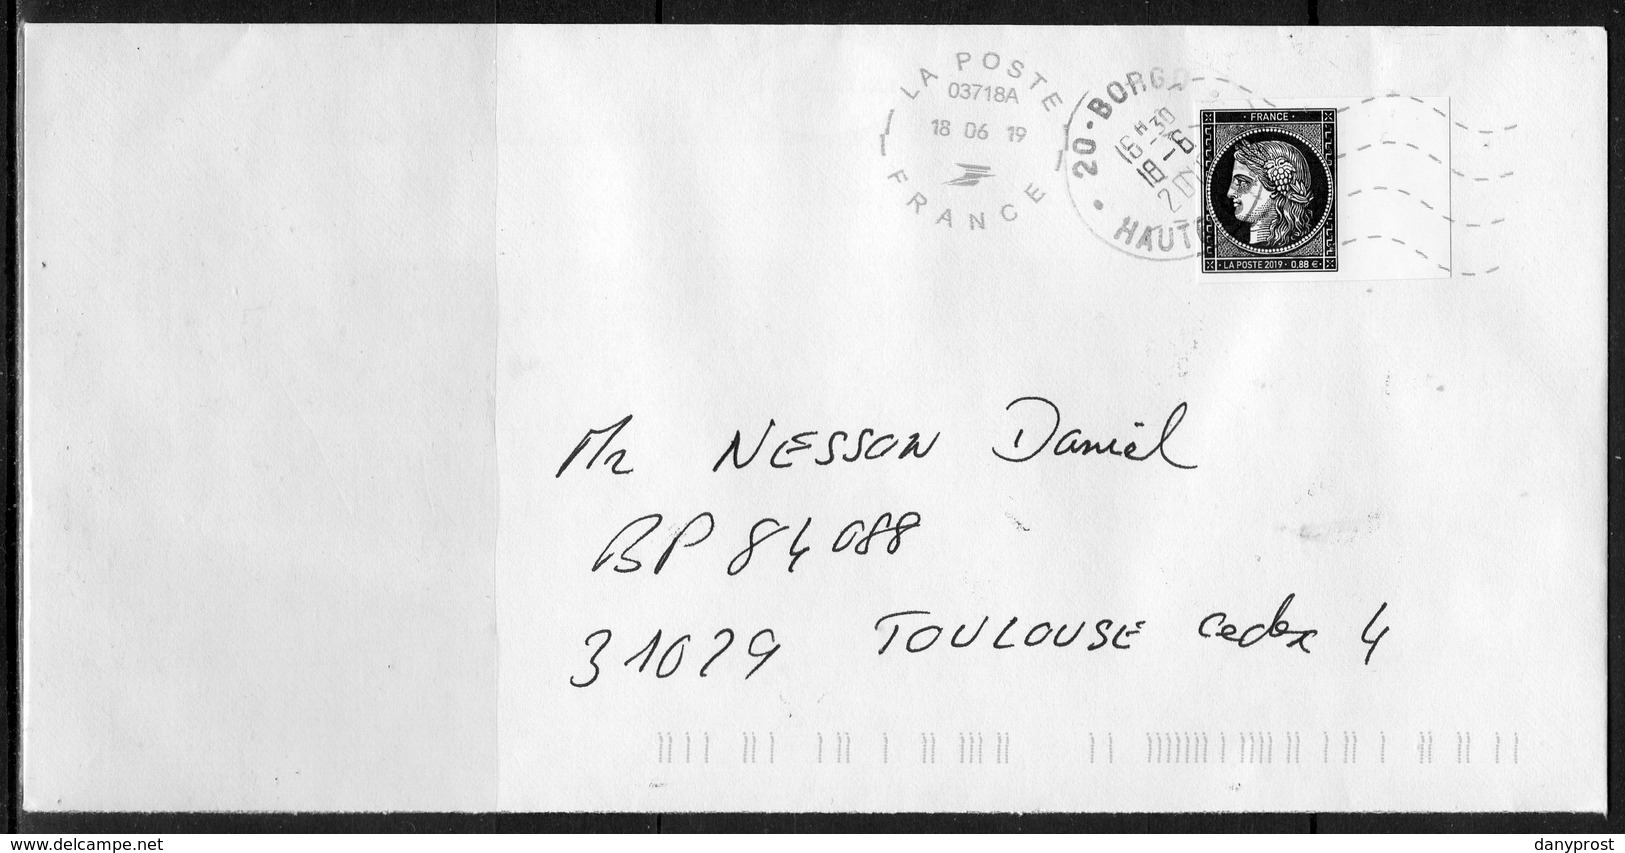 LA POSTE
03718A
18 06 19
FRANCE
20 · BORGO
16H30
18 -6
HAUTE
· FRANCE ·
· LA POSTE 2019 · 0,88 € ·
Mr NESSON Daniel
BP 84088
31029 TOULOUSE Cedex 4
delcampe.net
danyprost